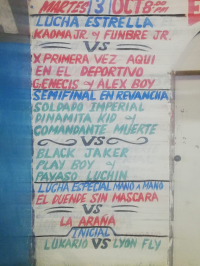 MARTES 31 OCT 8:00 PM
LUCHA ESTRELLA
KAOMA JR. Y FUNBRE JR.
VS
X PRIMERA VEZ AQUI
EN EL DEPORTIVO
GENECIS Y ALEX BOY
SEMIFINAL EN REVANCHA
SOLDADO IMPERIAL
DINAMITA KID Y
COMANDANTE MUERTE
VS
BLACK JAKER
PLAY BOY Y
PAYASO LUCHIN
LUCHA ESPECIAL MANO A MANO
EL DUENDE SIN MASCARA
VS
LA ARAÑA
INICIAL
LUKARIO VS LYON FLY